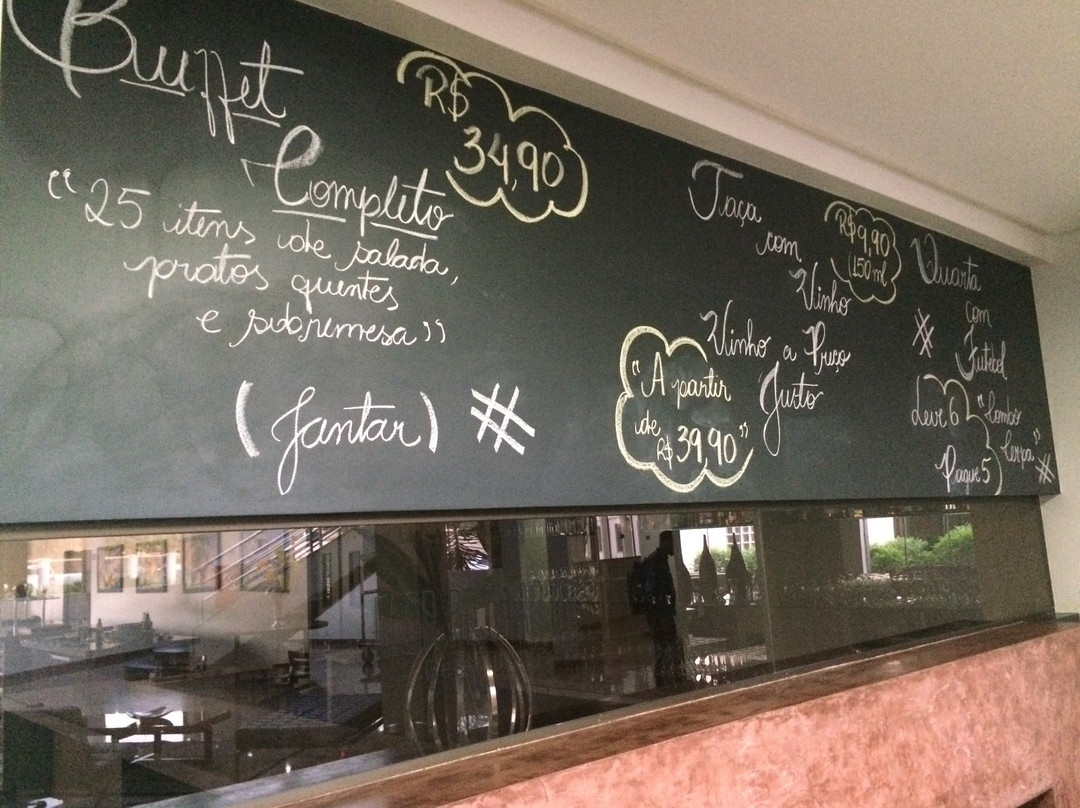 Buffet
Completo
R$
34,90
“25 itens de salada,
pratos quentes
e sobremesa”
(Jantar) #
Taça
com
Vinho
R$ 9,90
(150ml
Vinho a Preço
Justo
“A partir
de
R$ 39,90”
Quarta
com
Futebol
#
Leve 6
Pague 5
#